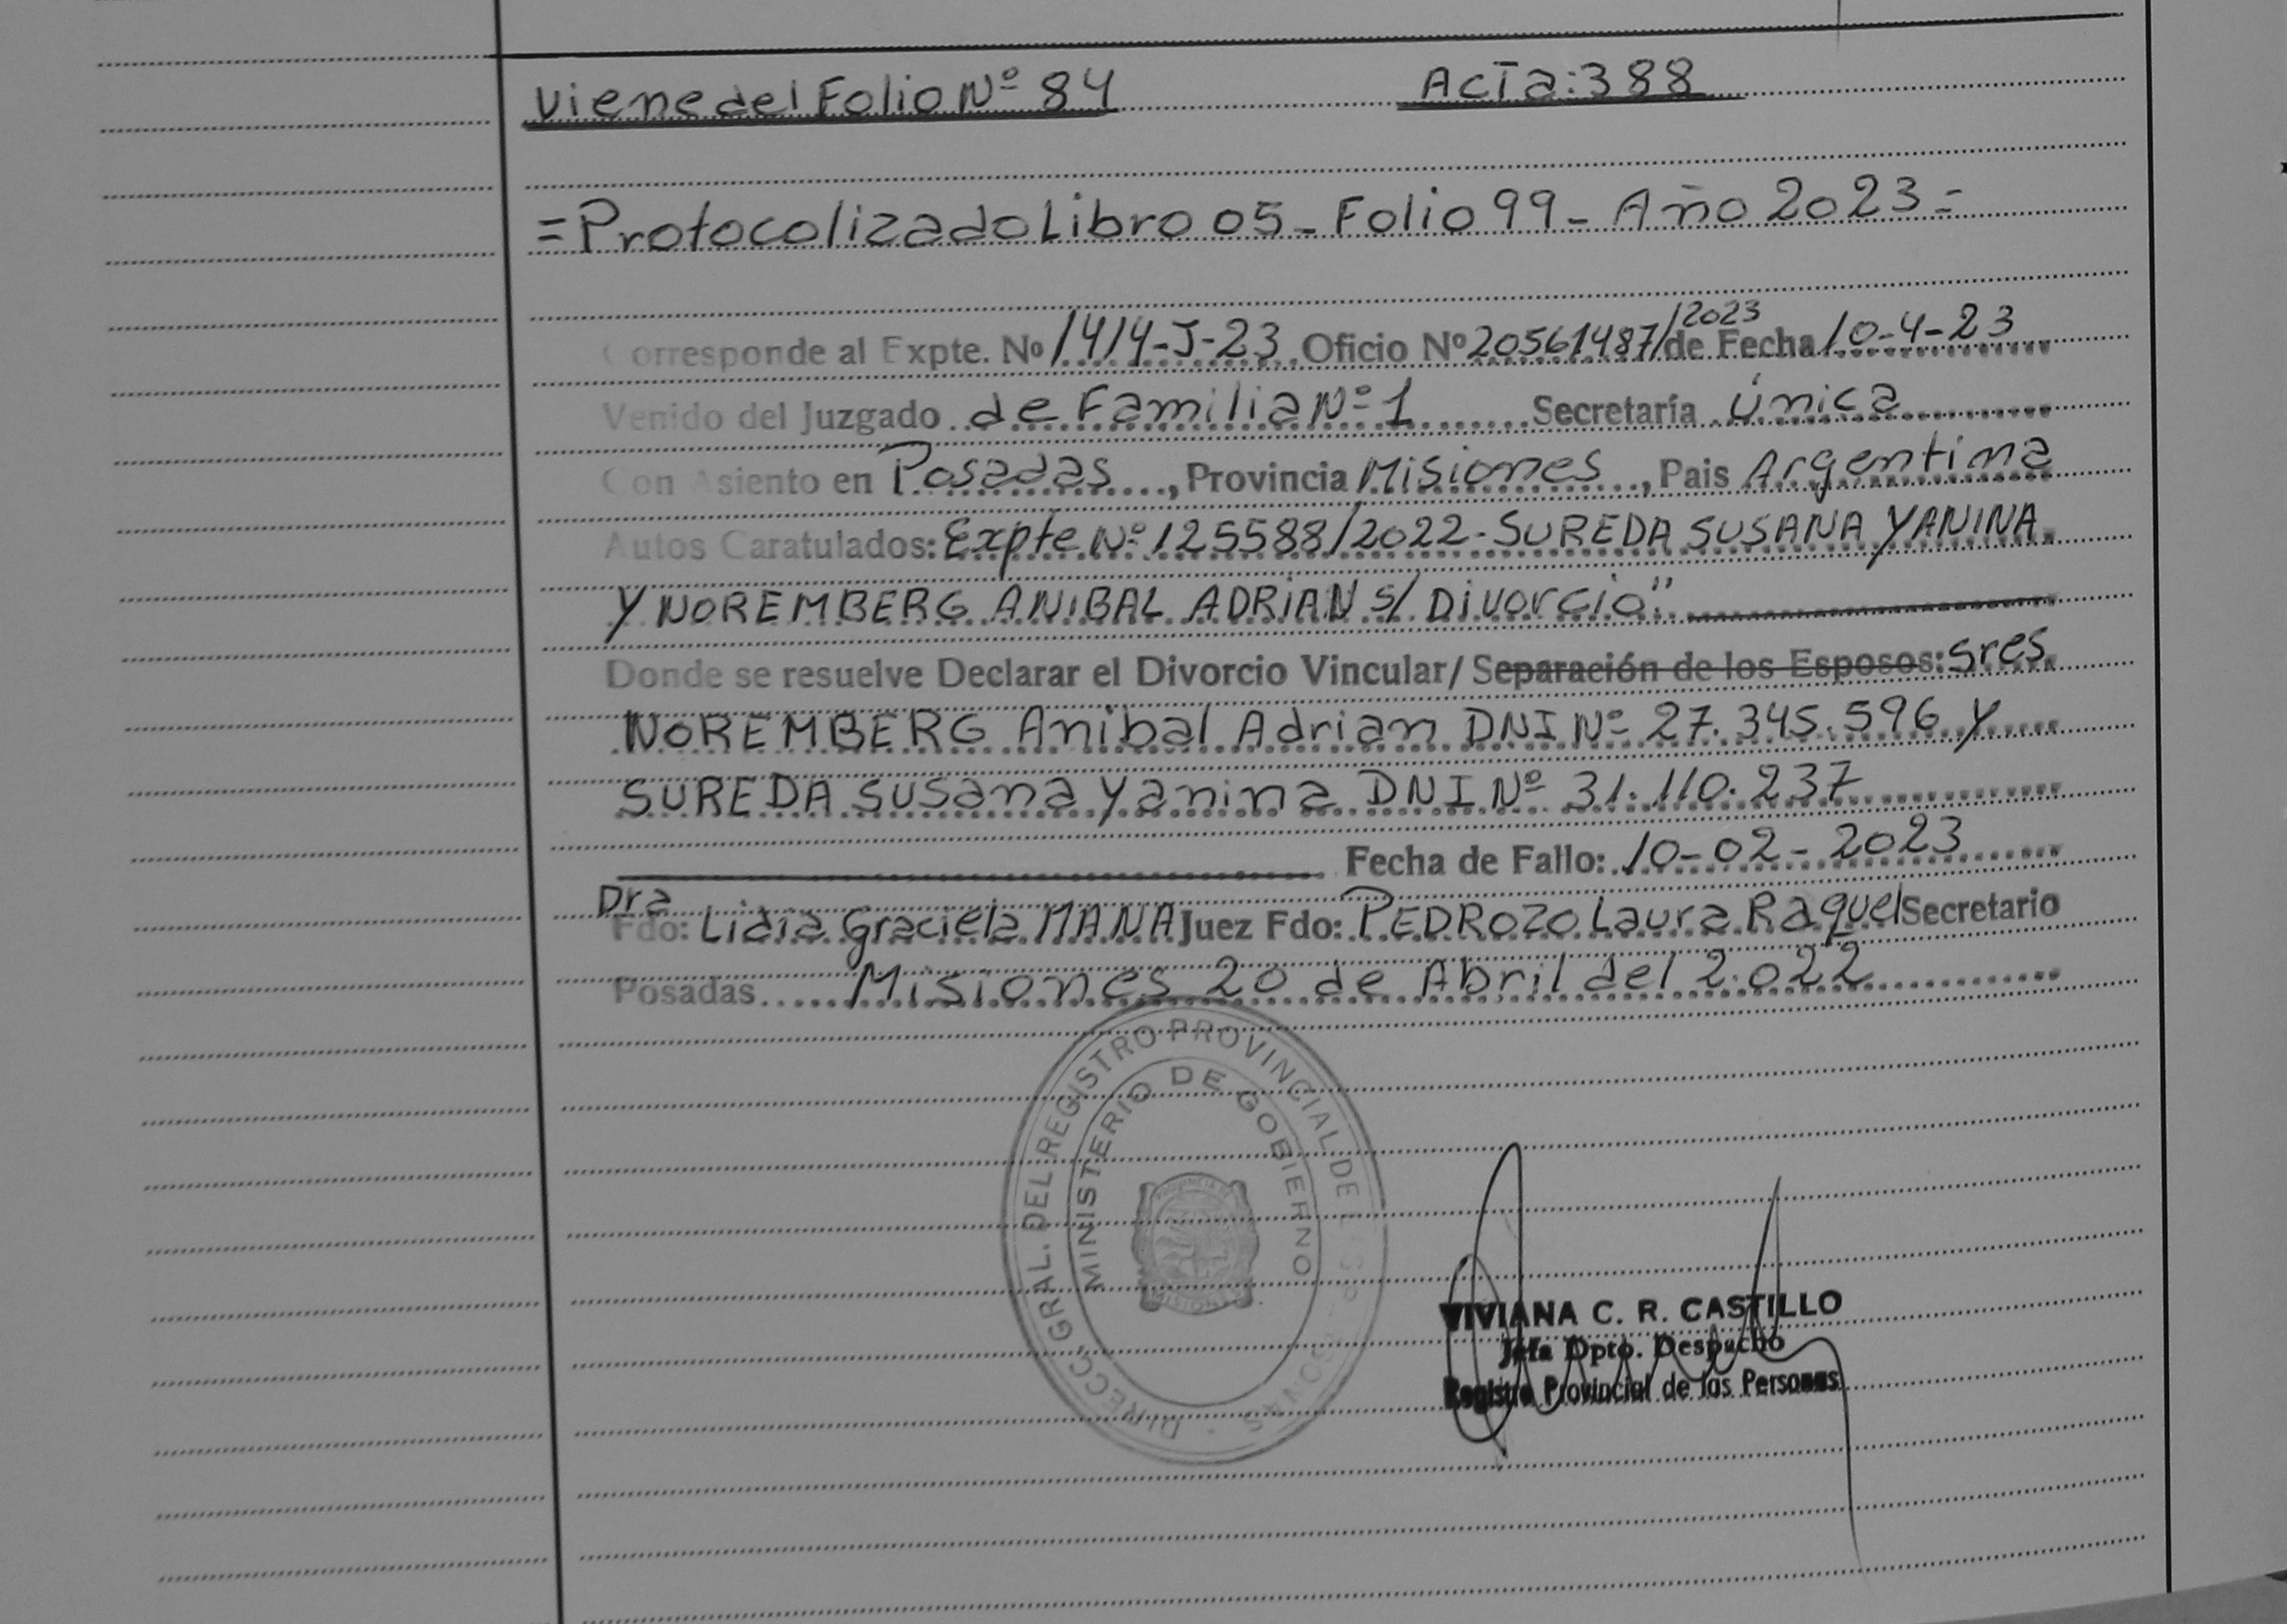 Viene del Folio Nº 84 Acta: 388
=Protocolizado Libro 05_ Folio 99_ Año 2023=
Corresponde al Expte. Nº 1414-J-23. Oficio Nº 20561487/2023 de Fecha 10-4-23
Venido del Juzgado de Familia Nº 1 Secretaría Única
Con Asiento en Posadas, Provincia Misiones, Pais Argentina
Autos Caratulados: Expte Nº 125588/2022- SUREDA SUSANA YANINA
Y NOREMBERG ANIBAL ADRIAN S/ Divorcio".
Donde se resuelve Declarar el Divorcio Vincular/ Separación de los Esposos: Sres
NOREMBERG Anibal Adrian DNI Nº 27.345.596 y
SUREDA Susana Yanina DNI Nº 31.110.237
Fecha de Fallo: 10-02-2023
Dra
Fdo: Lidia Graciela MANA Juez Fdo: PEDROZO Laura Raquel Secretario
Posadas Misiones 20 de Abril del 2.022
DIRECC. GRAL. DEL REGISTRO PROVINCIAL DE
MINISTERIO DE GOBIERNO
MISIONES
VIVIANA C. R. CASTILLO
Jefa Dpto. Despacho
Registro Provincial de las Personas